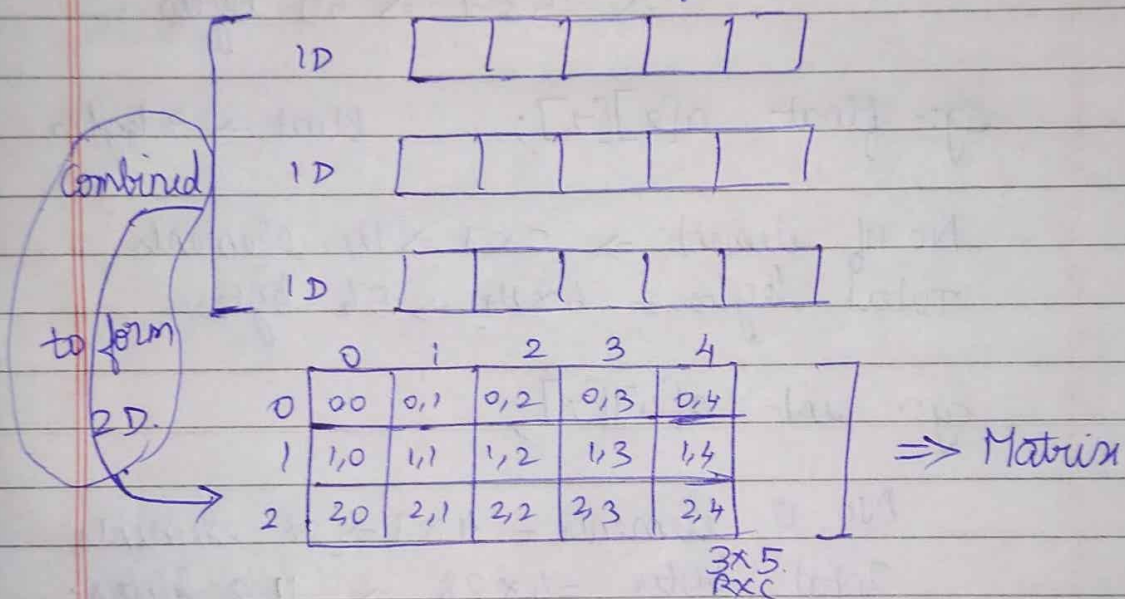 1D
Combined 1D
1D
to form
2D.
0 1 2 3 4
0 00 0,1 0,2 0,3 0,4
1 1,0 1,1 1,2 1,3 1,4
=> Matrix
2 2,0 2,1 2,2 2,3 2,4
3×5.
R×C